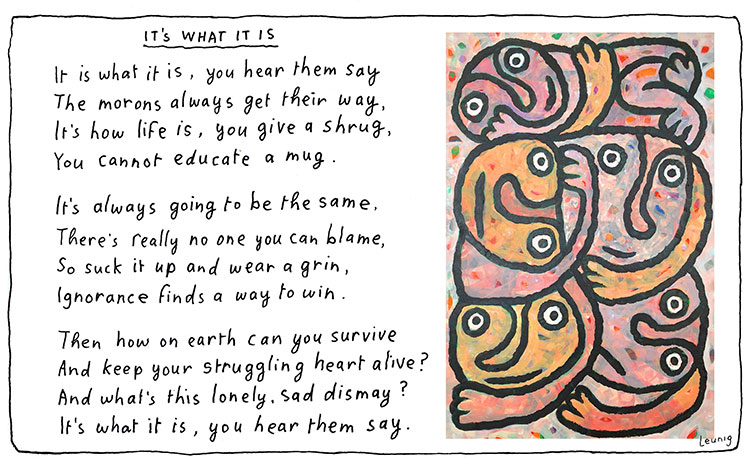 IT'S WHAT IT IS
It is what it is, you hear them say
The morons always get their way,
It's how life is, you give a shrug,
You cannot educate a mug.
It's always going to be the same,
There's really no one you can blame,
So suck it up and wear a grin,
Ignorance finds a way to win.
Then how on earth can you survive
And keep your struggling heart alive?
And what's this lonely, sad dismay?
It's what it is, you hear them say.
Leunig